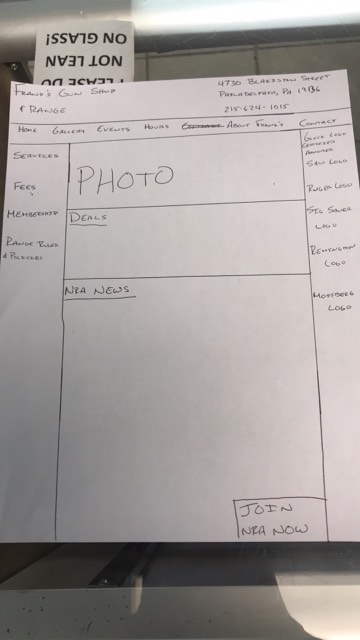 PLEASE DO
NOT LEAN
ON GLASS!
FRANK'S GUN SHOP
& RANGE
4730 BLAKISTON STREET
PHILADELPHIA, PA 19136
215-624-1015
HOME GALLERY EVENTS HOURS ABOUT FRANK'S CONTACT
SERVICES
FEES
MEMBERSHIP
RANGE RULES
& POLICIES
PHOTO
DEALS
NRA NEWS
JOIN
NRA NOW
GLOCK LOGO
CERTIFIED
ARMORER
S&W LOGO
RUGER LOGO
SIG SAUER
LOGO
REMINGTON
LOGO
MOSSBERG
LOGO